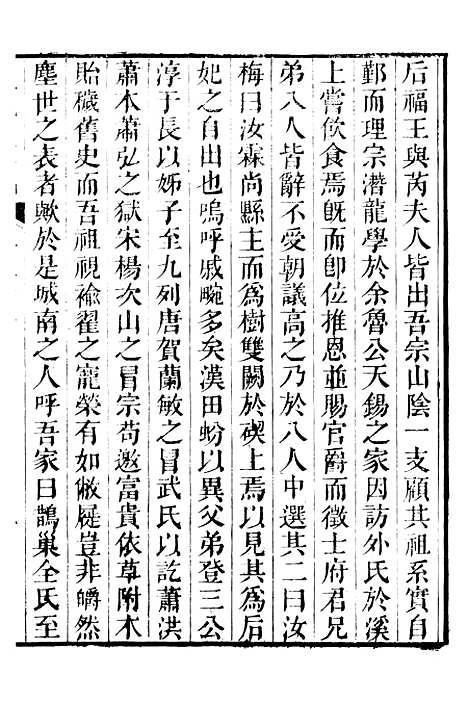 后福王與芮夫人皆出吾宗山陰一支顧其祖系實自
鄞而理宗潛龍學於余魯公天錫之家因訪外氏於溪
上嘗飲食焉旣而卽位推恩並賜官爵而徵士府君兄
弟八人皆辭不受朝議高之乃於八人中選其二曰汝
梅曰汝霖尚縣主而爲樹雙闕於碶上焉以見其爲后
妃之自出也嗚呼戚畹多矣漢田蚡以異父弟登三公
淳于長以姊子至九列唐賀蘭敏之冒武氏以訖蕭洪
蕭本蕭弘之獄宋楊次山之冒宗苟邀富貴依草附木
貽穢舊史而吾祖視褕翟之寵榮有如敝屣豈非皭然
塵世之表者歟於是城南之人呼吾家曰鵲巢全氏至